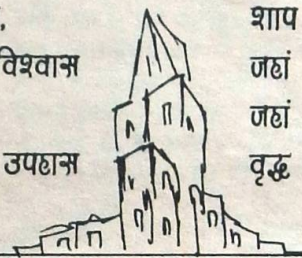 विश्वास
उपहास
शाप
जहां
जहां
वृद्ध